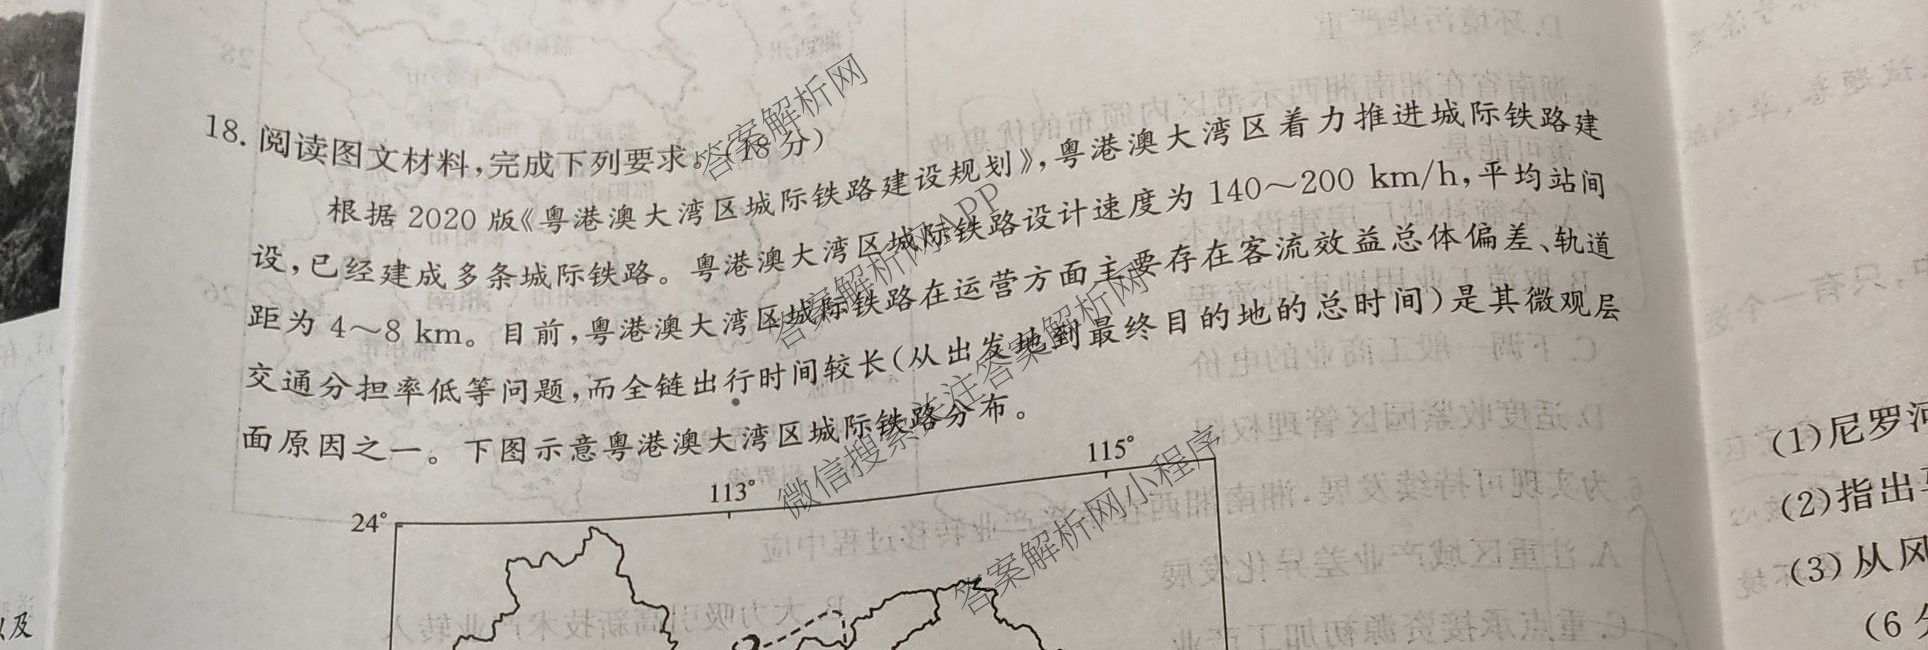 18. 阅读图文材料,完成下列要求。(18分)
根据 2020 版《粤港澳大湾区城际铁路建设规划》,粤港澳大湾区着力推进城际铁路建
设,已经建成多条城际铁路。粤港澳大湾区城际铁路设计速度为 140～200 km/h,平均站间
距为 4～8 km。目前,粤港澳大湾区城际铁路在运营方面主要存在客流效益总体偏差、轨道
交通分担率低等问题,而全链出行时间较长(从出发地到最终目的地的总时间)是其微观层
面原因之一。下图示意粤港澳大湾区城际铁路分布。
113°
115°
24°
答案解析网
答案解析网APP
微信搜索关注答案解析网
答案解析网小程序
以及
,只有一个
(1)尼罗河
(2)指出
(3)从风
(6分